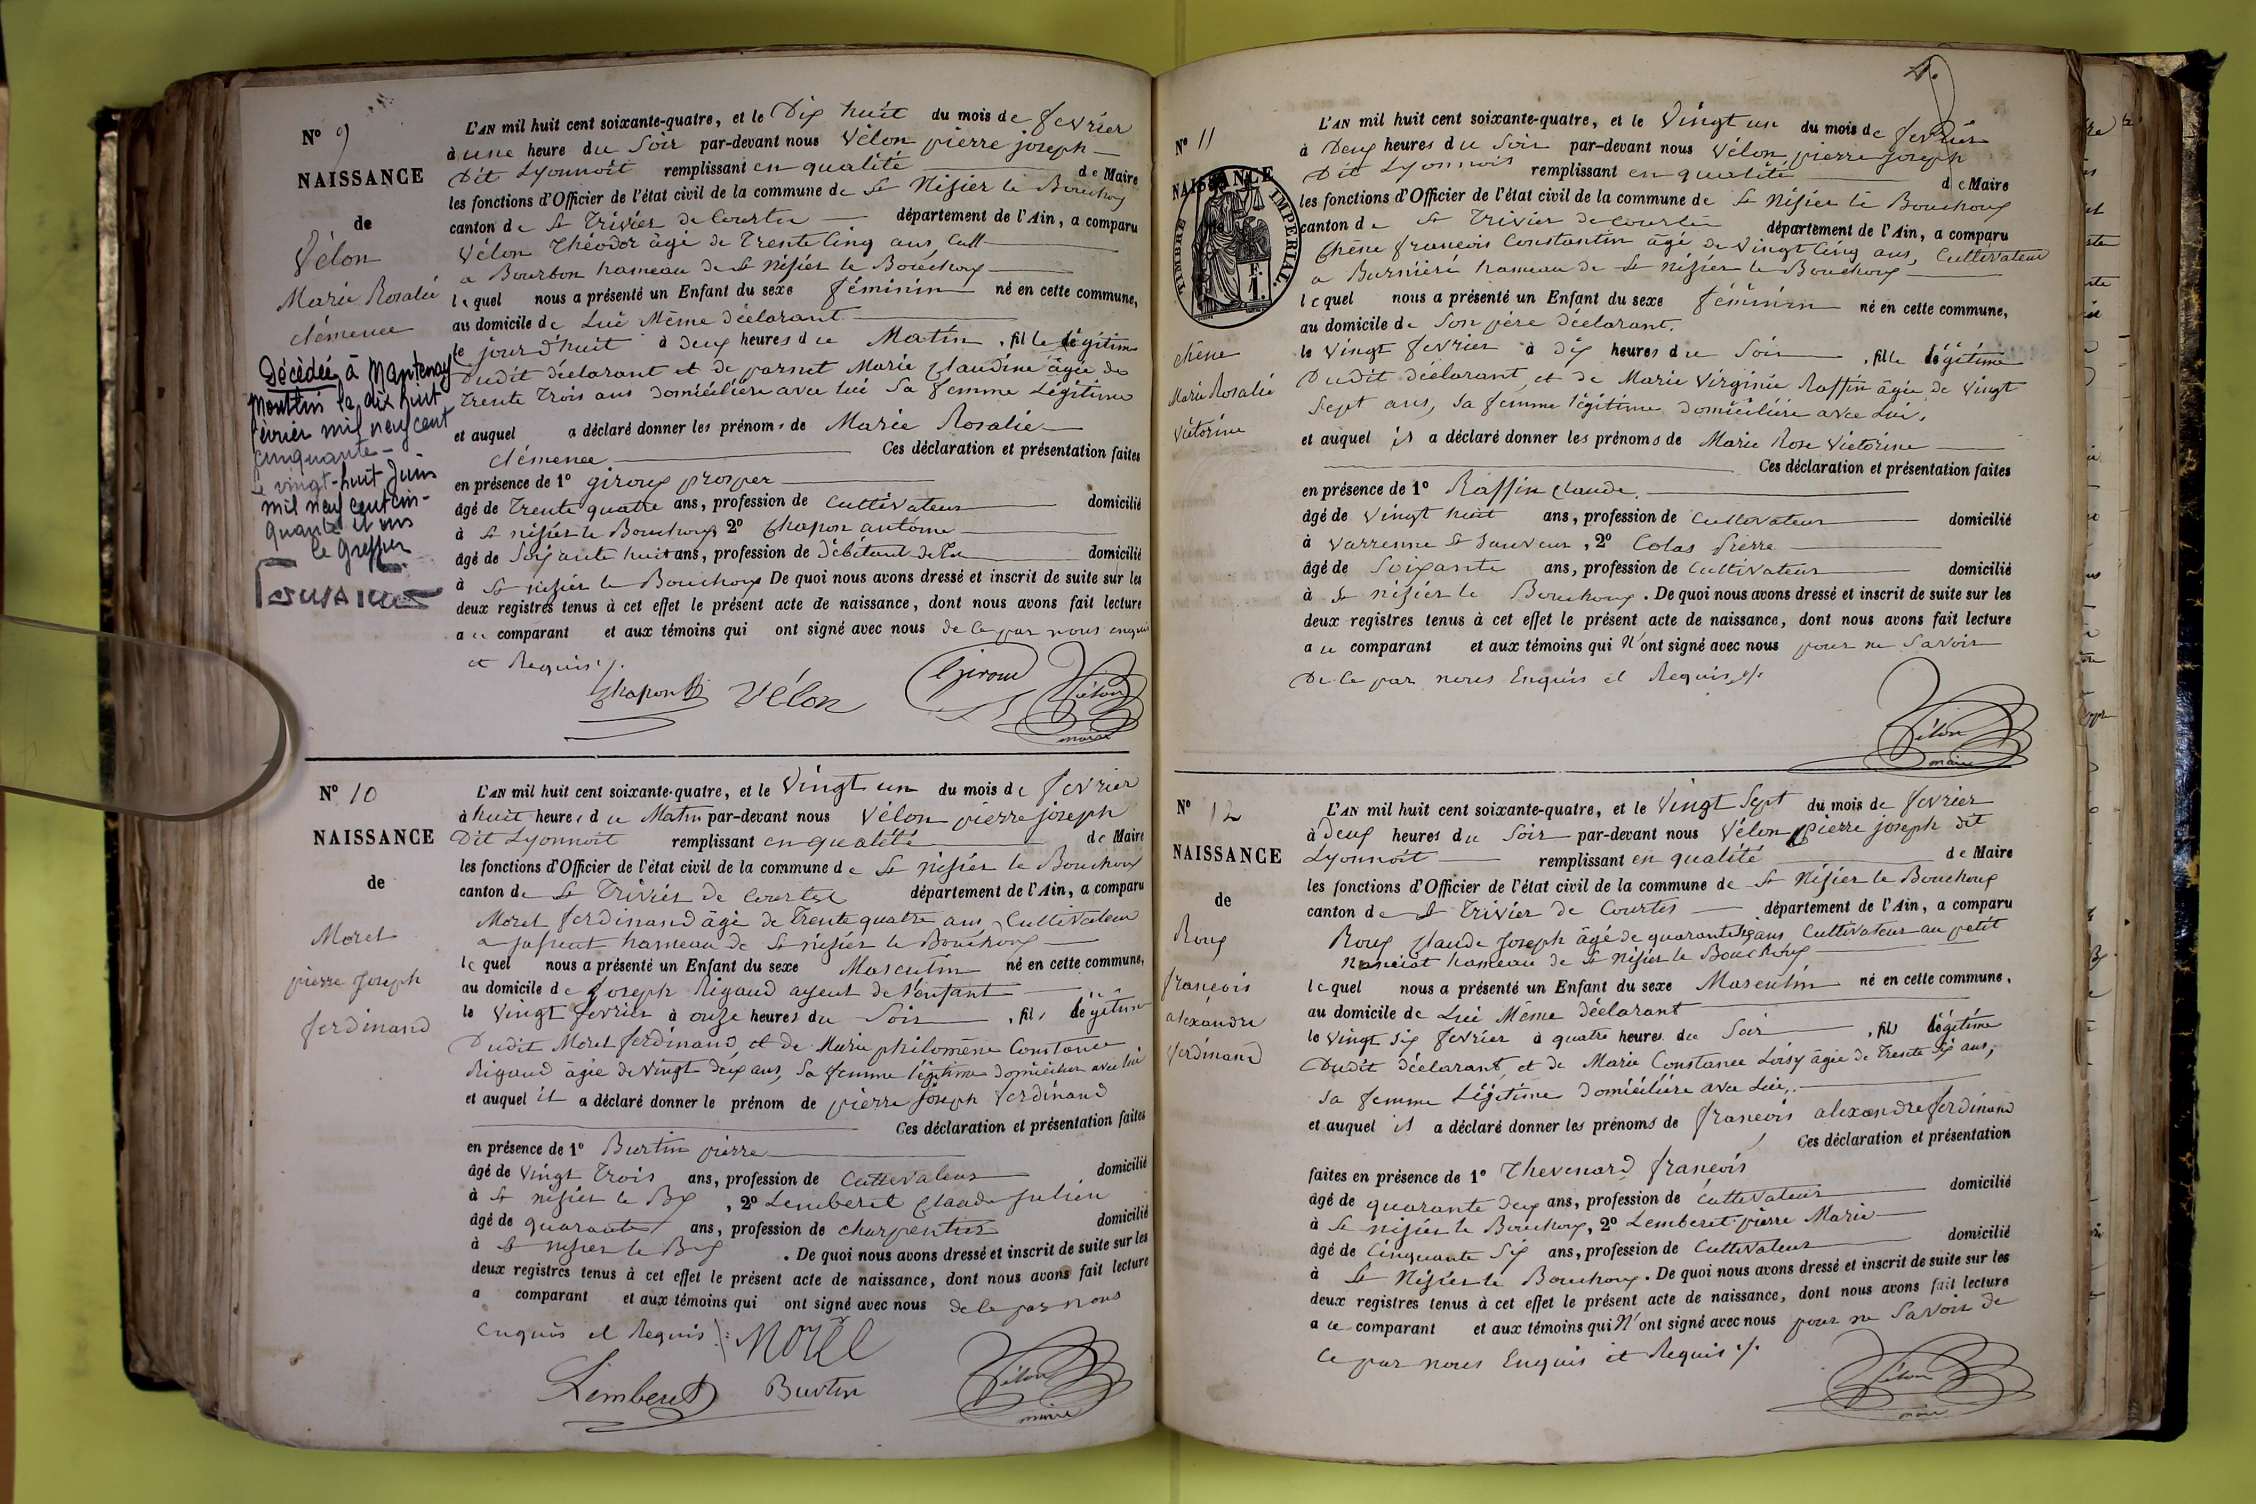 N° 9
NAISSANCE
de
Vélon
Marie Rosalie
clémence
Décédée à Mantenay
Montlin le dix huit
février mil neuf cent
cinquante -
le vingt-huit Juin
mil neuf cent cin-
quante et un
le Greffier
L'AN mil huit cent soixante-quatre, et le Dix huit du mois de fevrier
à une heure du Soir par-devant nous Vélon pierre joseph
Dit Lyonnoit remplissant en qualité de Maire
les fonctions d'Officier de l'état civil de la commune de St Nisier le Bouchoux
canton de St Trivier de Courtes département de l'Ain, a comparu
Vélon Théodor âgé de Trente Cinq ans, Cult
a Bourbon hameau de St nisier le Bouchoux
lequel nous a présenté un Enfant du sexe féminin né en cette commune,
au domicile de Lui Même déclarant
le jour d'huit à deux heures du Matin, fille légitime
Dudit déclarant et de parnet Marie Claudine âgée de
Trente Trois ans domiciliée avec lui Sa femme Légitime
et auquel a déclaré donner les prénoms de Marie Rosalie
clémence Ces déclaration et présentation faites
en présence de 1° giroux prosper
âgé de Trente quatre ans, profession de Cultivateur domicilié
à St nisier le Bouchoux 2° Chapon antoine
âgé de Soixante huit ans, profession de Débitant de domicilié
à St nisier le Bouchoux De quoi nous avons dressé et inscrit de suite sur les
deux registres tenus à cet effet le présent acte de naissance, dont nous avons fait lecture
au comparant et aux témoins qui ont signé avec nous de ce par nous enquis
et Requis ./.
Chapon Vélon Giroud Vélon
maire
N° 10
NAISSANCE
de
Morel
pierre Joseph
ferdinand
L'AN mil huit cent soixante-quatre, et le Vingt un du mois de fevrier
à huit heures du Matin par-devant nous Vélon pierre joseph
Dit Lyonnoit remplissant en qualité de Maire
les fonctions d'Officier de l'état civil de la commune de St nisier le Bouchoux
canton de St Trivier de Courtes département de l'Ain, a comparu
Morel ferdinand âgé de Trente quatre ans, Cultivateur
a hameau de St nisier le Bouchoux
lequel nous a présenté un Enfant du sexe Masculin né en cette commune,
au domicile de Joseph Rigaud ayeul de l'enfant
le Vingt fevrier à onze heures du Soir, fils légitime
Dudit Morel ferdinand et de Marie philomène Constance
Rigaud âgée de Vingt deux ans, Sa femme légitime domiciliée avec lui
et auquel il a déclaré donner le prénom de pierre Joseph Ferdinand
Ces déclaration et présentation faites
en présence de 1° Burtin pierre
âgé de Vingt Trois ans, profession de Cultivateur domicilié
à St nisier le Bx, 2° Lemberet Claude Julien
âgé de quarante ans, profession de charpentier domicilié
à St nisier le Bx. De quoi nous avons dressé et inscrit de suite sur les
deux registres tenus à cet effet le présent acte de naissance, dont nous avons fait lecture
a comparant et aux témoins qui ont signé avec nous de ce par nous
Enquis et Requis ./. Morel
Lemberet Burtin Vélon
maire
N° 11
NAISSANCE
TIMBRE IMPÉRIAL.
F.
1.
chêne
Marie Rosalie
Victorine
L'AN mil huit cent soixante-quatre, et le Vingt un du mois de fevrier
à Deux heures du Soir par-devant nous Vélon pierre joseph
Dit Lyonnois remplissant en qualité de Maire
les fonctions d'Officier de l'état civil de la commune de St Nisier le Bouchoux
canton de St Trivier de Courtes département de l'Ain, a comparu
Chêne francois Constantin âgé de Vingt Cinq ans, Cultivateur
a hameau de St nisier le Bouchoux
lequel nous a présenté un Enfant du sexe féminin né en cette commune,
au domicile de Son père déclarant.
le Vingt fevrier à dix heures du Soir, fille légitime
Dudit déclarant, et de Marie Virginie Raffin âgée de Vingt
Sept ans, Sa femme légitime domiciliée avec Lui,
et auquel il a déclaré donner les prénoms de Marie Rose Victorine
Ces déclaration et présentation faites
en présence de 1° Raffin Claude.
âgé de Vingt huit ans, profession de Cultivateur domicilié
à Varrenne St Sauveur, 2° Colas Pierre
âgé de Soixante ans, profession de Cultivateur domicilié
à St nisier le Bouchoux. De quoi nous avons dressé et inscrit de suite sur les
deux registres tenus à cet effet le présent acte de naissance, dont nous avons fait lecture
au comparant et aux témoins qui N'ont signé avec nous pour ne Savoir
De Ce par nous Enquis et Requis ./.
Vélon
maire
N° 12
NAISSANCE
de
Roux
francois
alexandre
ferdinand
L'AN mil huit cent soixante-quatre, et le Vingt Sept du mois de fevrier
à deux heures du Soir par-devant nous Vélon pierre joseph dit
Lyonnoit remplissant en qualité de Maire
les fonctions d'Officier de l'état civil de la commune de St Nisier le Bouchoux
canton de St Trivier de Courtes département de l'Ain, a comparu
Roux Claude Joseph âgé de quarante ans Cultivateur au petit
hameau de St Nisier le Bouchoux
lequel nous a présenté un Enfant du sexe Masculin né en cette commune,
au domicile de Lui Même déclarant
le Vingt Six fevrier à quatre heures du Soir, fils légitime
Dudit déclarant, et de Marie Constance Loisy âgée de Trente Six ans,
Sa femme Légitime domiciliée avec Lui,
et auquel il a déclaré donner les prénoms de francois alexandre ferdinand
Ces déclaration et présentation
faites en présence de 1° Thevenard francois
âgé de quarante deux ans, profession de Cultivateur domicilié
à St nisier le Bouchoux, 2° Lemberet pierre Marie
âgé de Cinquante Six ans, profession de Cultivateur domicilié
à St Nisier le Bouchoux. De quoi nous avons dressé et inscrit de suite sur les
deux registres tenus à cet effet le présent acte de naissance, dont nous avons fait lecture
au comparant et aux témoins qui N'ont signé avec nous pour ne Savoir de
Ce par nous Enquis et Requis ./.
Vélon
maire